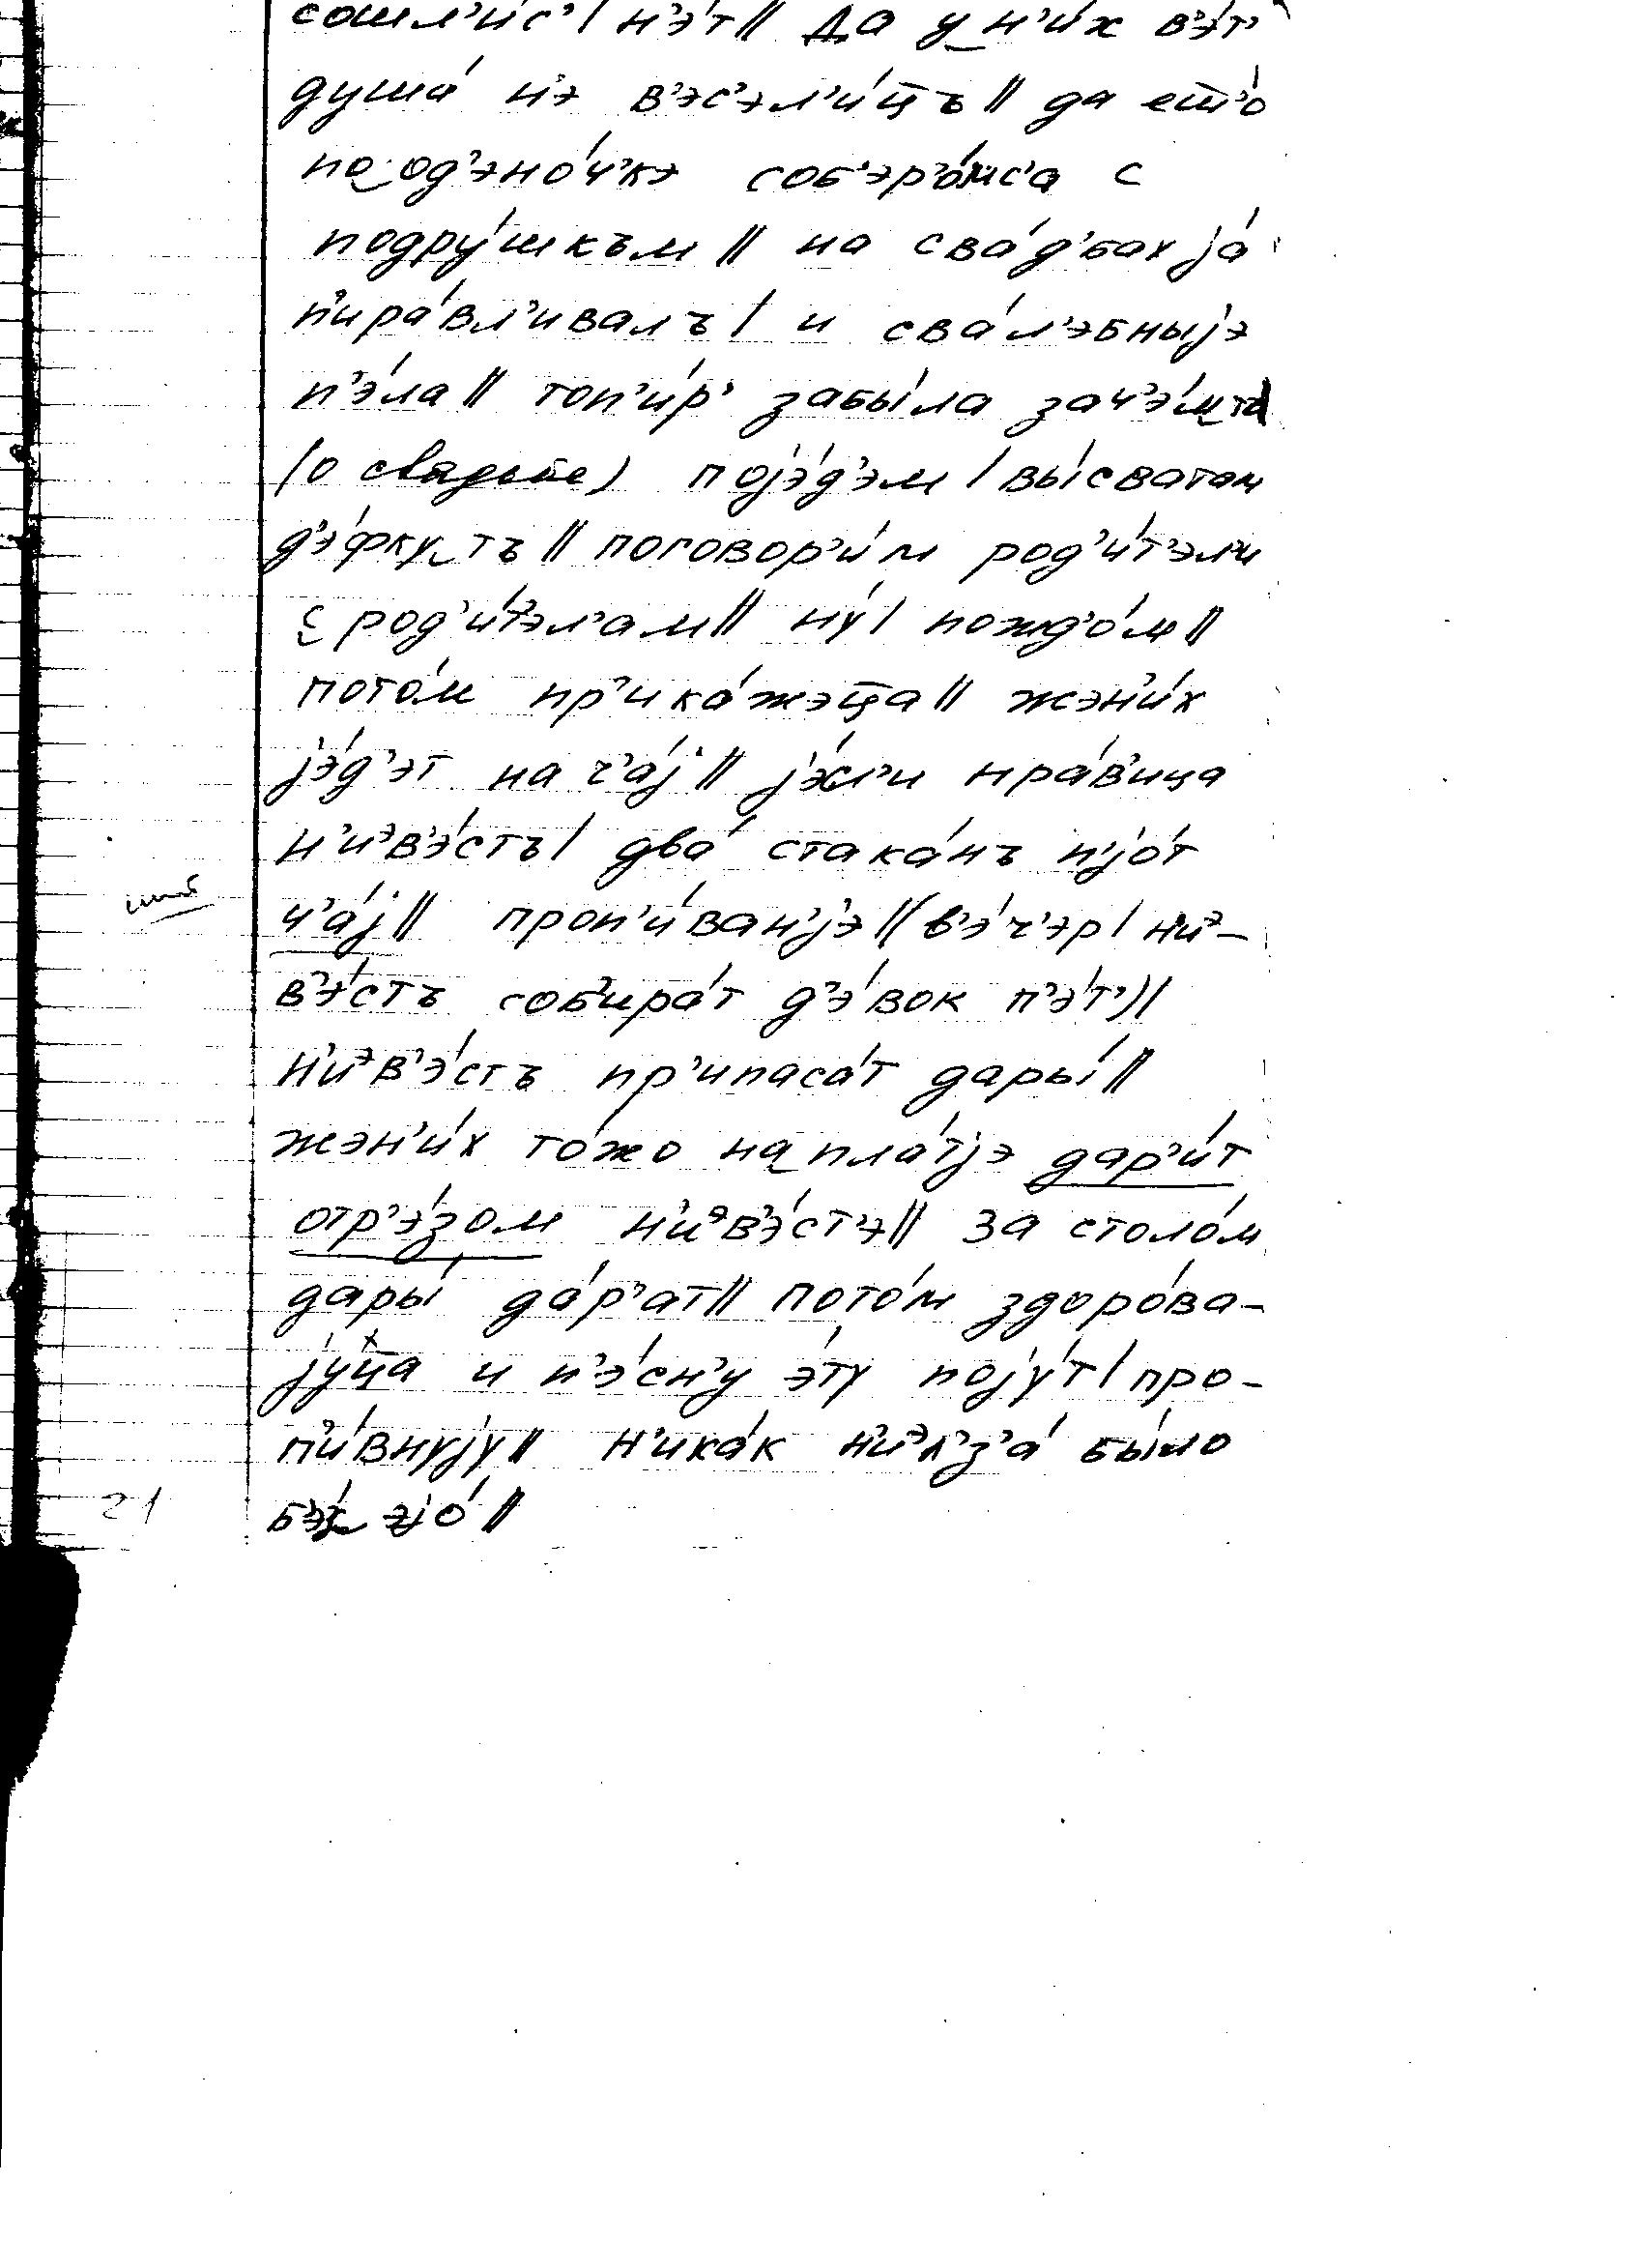 сошл'и́с' / н'э́т // Да у‿н'и́х в'э́т'
душа́ н'э в'эс'эл'и́цъ // да ешт'о́
по‿од'эно́ч'кэ соб'эр'о́мс'а с
подру́шкъм // на сва́д'бах ја́
п'ира́вл'ивалъ / и сва́л'эбныјэ
п'э́ла // топ'и́р' забы́ла зач'э́м‿то
(о свадьбе) појэ́д'эм / вы́сватам
д'э́фку‿тъ // поговор'и́м род'и́т'эли
с род'и́т'эл'ам // ну́ / пожд'о́м //
пото́м пр'ика́жэца // жэн'и́х
јэ́д'эт на ч'а́ј // јэ́сл'и нра́в'ица
н'иэв'э́стъ / два́ стака́нъ п'јо́т
ч'а́ј // проп'и́ван'јэ // (в'э́ч'эр / н'иэ-
в'э́стъ соб'ира́т д'э́вок п'э́т') /
н'иэв'э́стъ пр'ипаса́т дары́ //
жэн'и́х то́жо на‿пла́т'јэ дар'и́т
отр'э́зом н'иэв'э́ст'э // За столо́м
дары́ да́р'ат // пото́м здоро́ва-
јуца и п'э́сн'у э́ту појут́ / про-
п'и́внују // н'ика́к н'иэл'з'а́ бы́ло
б'эз‿эјо́ //
21